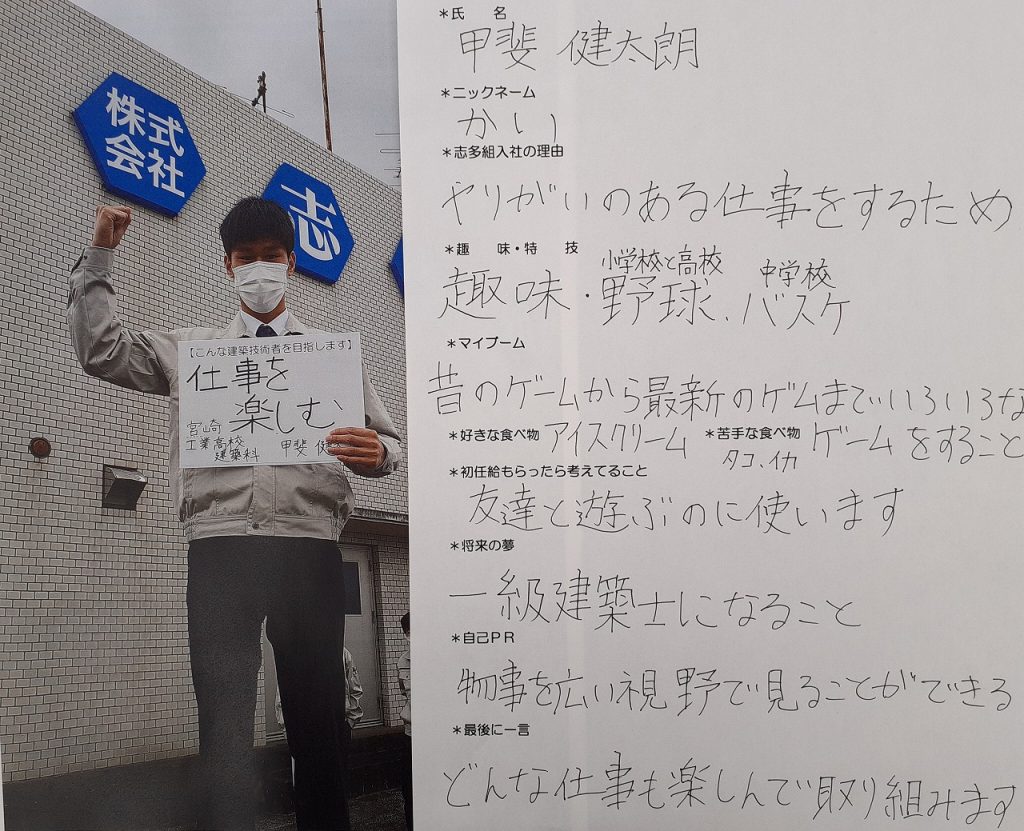 株式
会社
志
【こんな建築技術者を目指します】
仕事を
楽しむ、
宮崎
工業高校
建築科
甲斐 健
＊氏 名
甲斐 健太朗
＊ニックネーム
かい
＊志多組入社の理由
やりがいのある仕事をするため
＊趣 味・特 技
小学校と高校 中学校
趣味・野球、バスケ
＊マイブーム
昔のゲームから最新のゲムまでいろいろな
ゲームをすること
＊好きな食べ物 アイスクリーム
＊苦手な食べ物
タコ、イカ
＊初任給もらったら考えてること
友達と遊ぶのに使います
＊将来の夢
一級建築士になること
＊自己ＰＲ
物事を広い視野で見ることができる
＊最後に一言
どんな仕事も楽しんで取り組みます